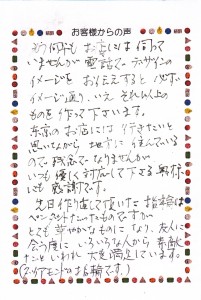 お客様からの声
もう何年も お店には 伺って
いませんが 電話で、デザインの
イメージを お伝えすると 必ず
イメージ通り、いえ それ以上の
ものを 作って下さいます。
東京の お店には 行きたいと
思いながら 地方に 住んでいる
ので 残念でなりませんが
いつも 優しく 対応して下さる
にも 感謝です。
先日 作り直して頂いた 指輪は
ペンダントだったものですが
とても 華やかなものに なり、友人に
会う度に いろいろな人から 素敵
ねと いわれ 大変満足しています。
の 指輪です。)